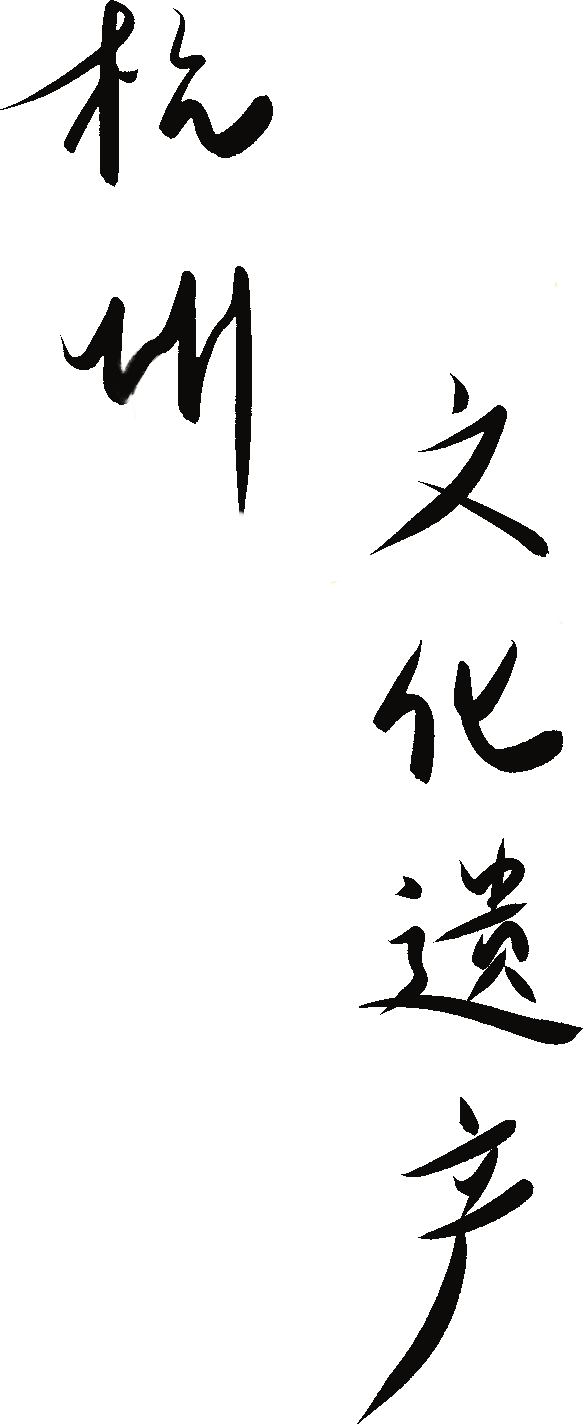 杭州
文化遗产